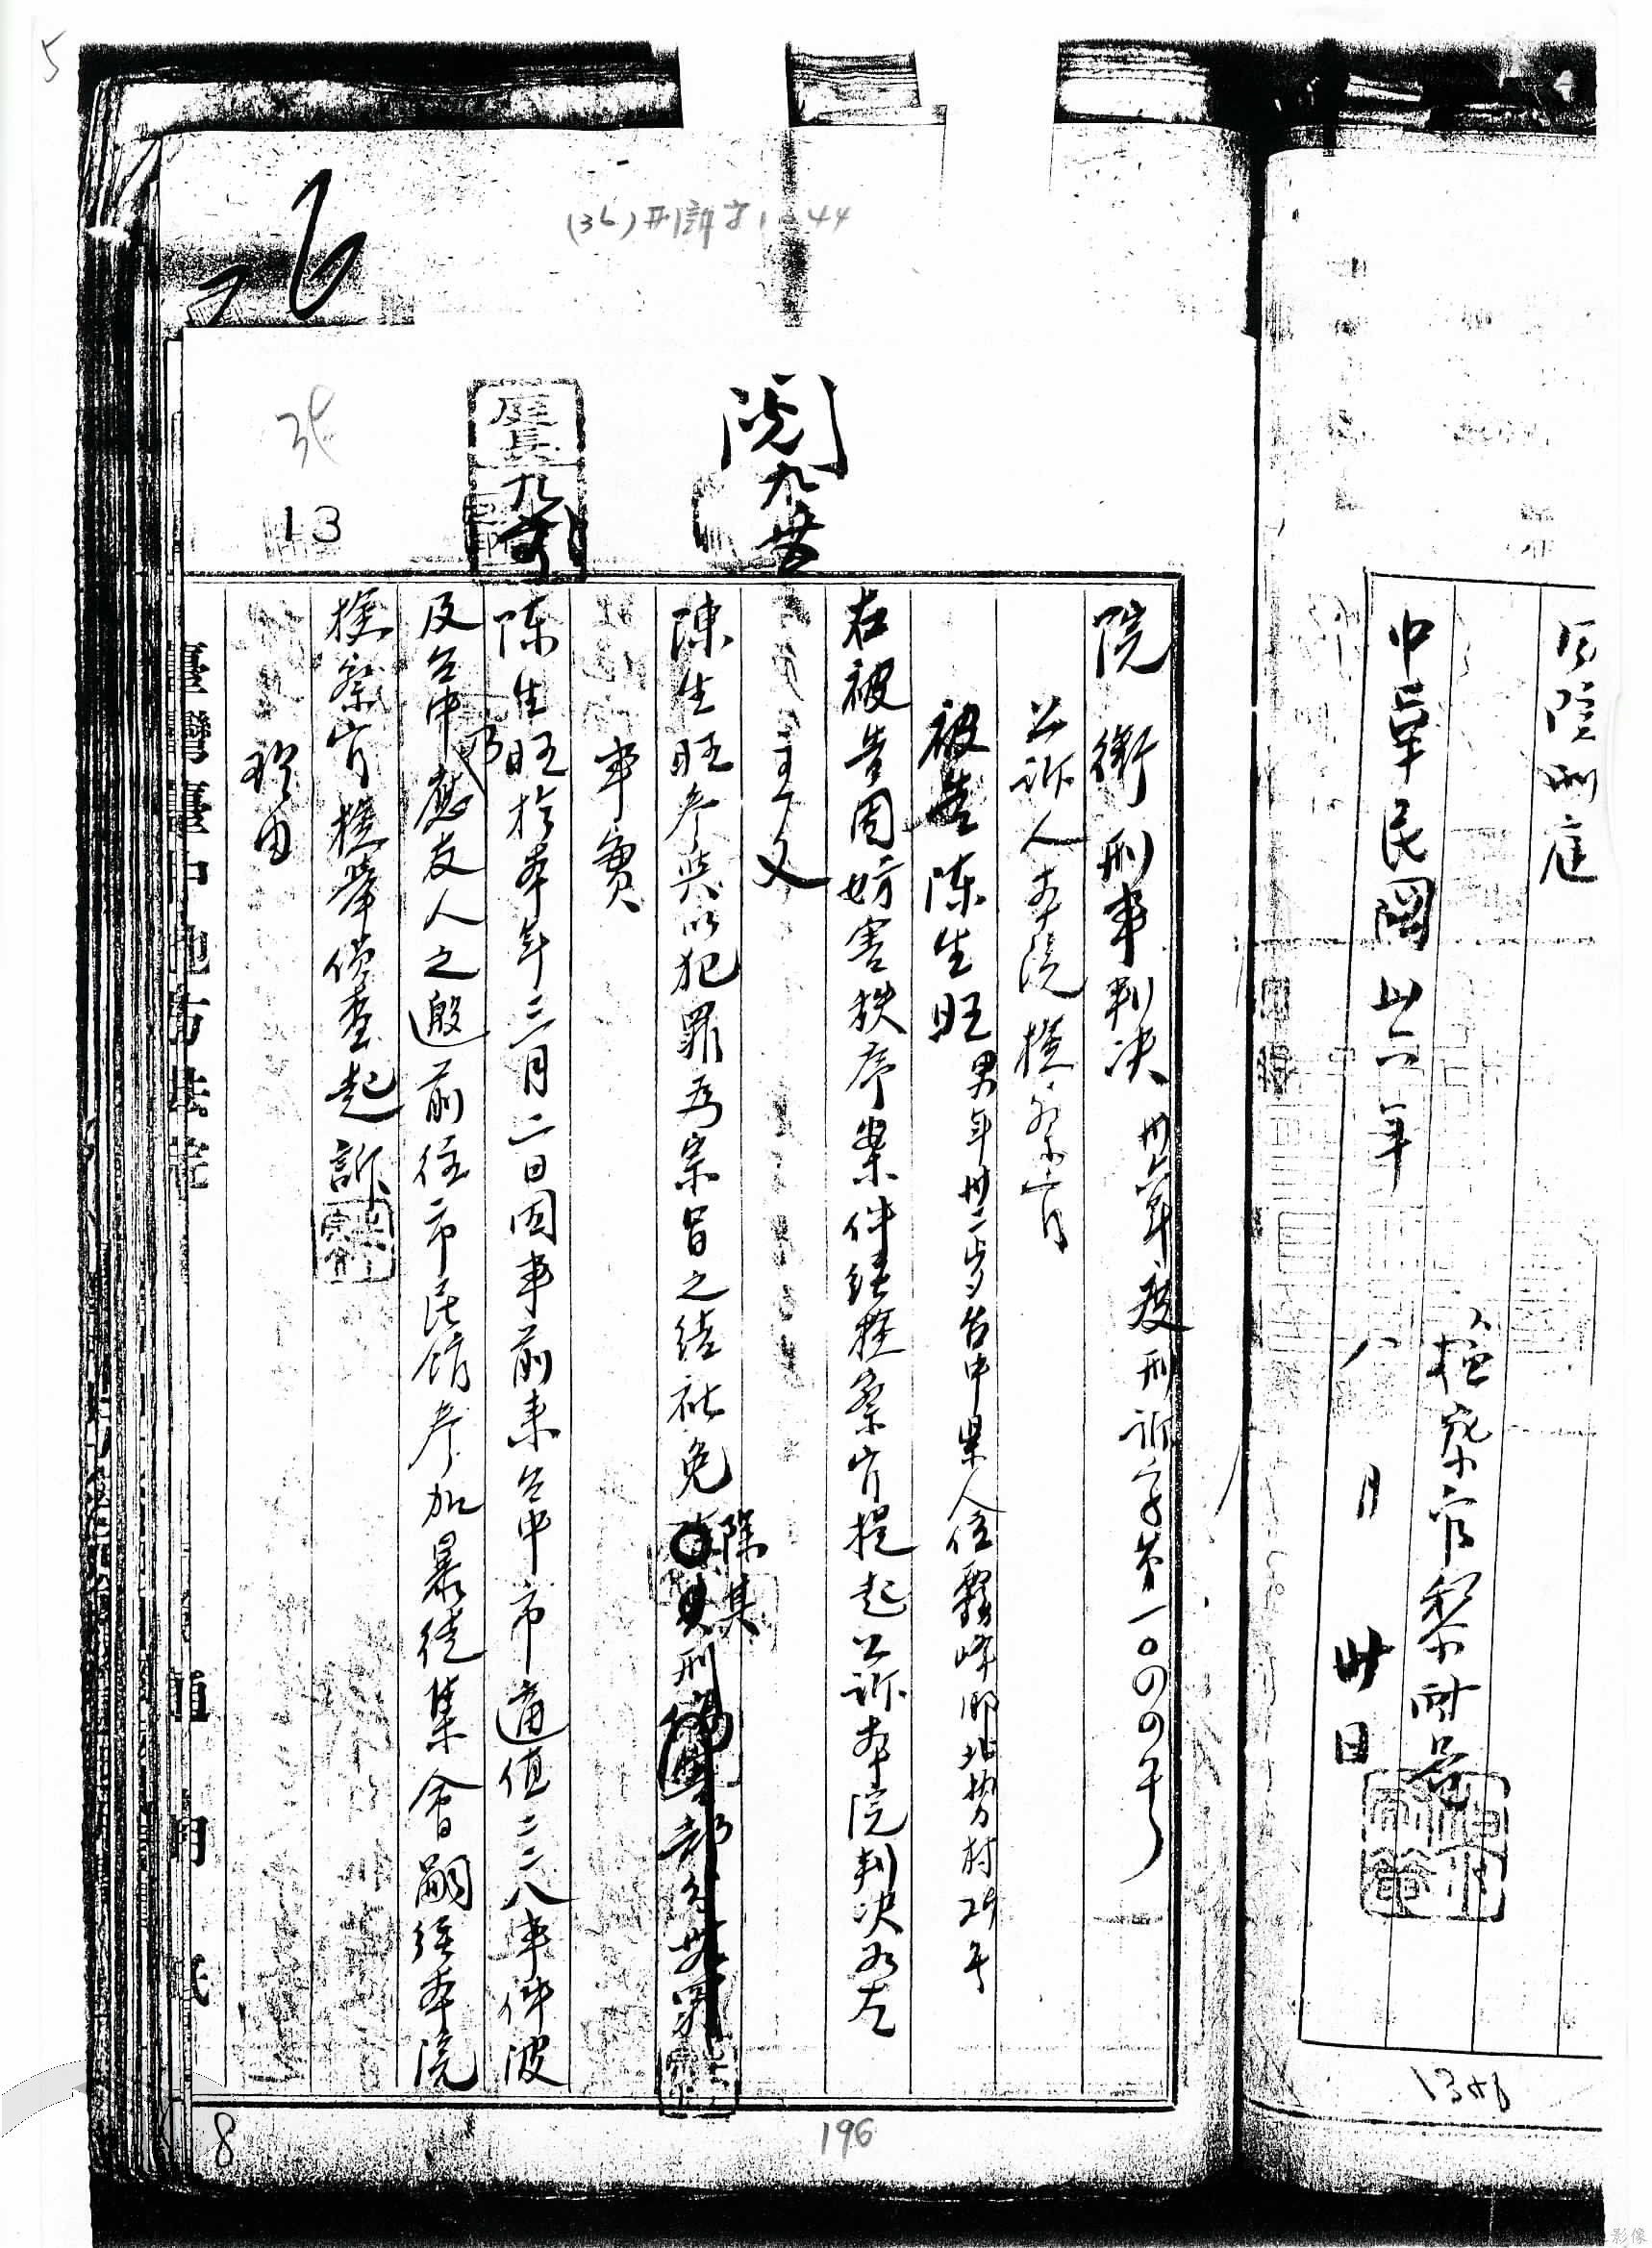 5
(36)刑訴字1044
本院刑庭
檢察官黎耐菴
中華民國卅六年 八月 卅日
1346
閱 九 廿
庭長
九
13
院銜刑事判決 卅六年度刑訴字第一〇四四号
公訴人本院檢察官
被告陳生旺 男年卅二歲台中縣人住霧峰鄉北勢村29号
右被告因妨害秩序案件經檢察官提起公訴本院判決如左
主文
陳生旺參與以犯罪為宗旨之結社免除其刑
事實
陳生旺於本年三月二日因事前來台中市適值二二八事件波
及台中乃應友人之邀前往市民館參加暴徒集會嗣經本院
檢察官檢舉偵查起訴
理由
臺灣臺中地方法院
用紙
196
8
影像